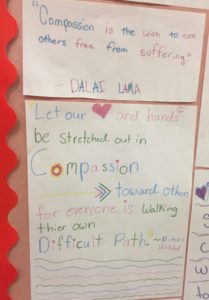 "Compassion is the wish to see
others free from suffering"
- DALAI LAMA
Let our and hands
be stretched out in
Compassion
toward others
for everyone is walking
thier own
Difficult Path.